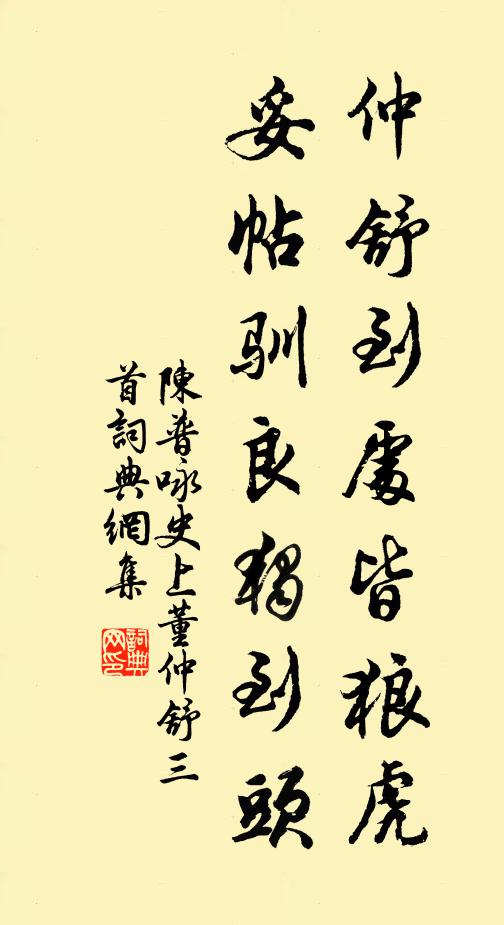 仲舒到處皆狼虎
妥帖馴良獨到頭
陳普咏史上董仲舒三
首詞典網集
詞典
网印